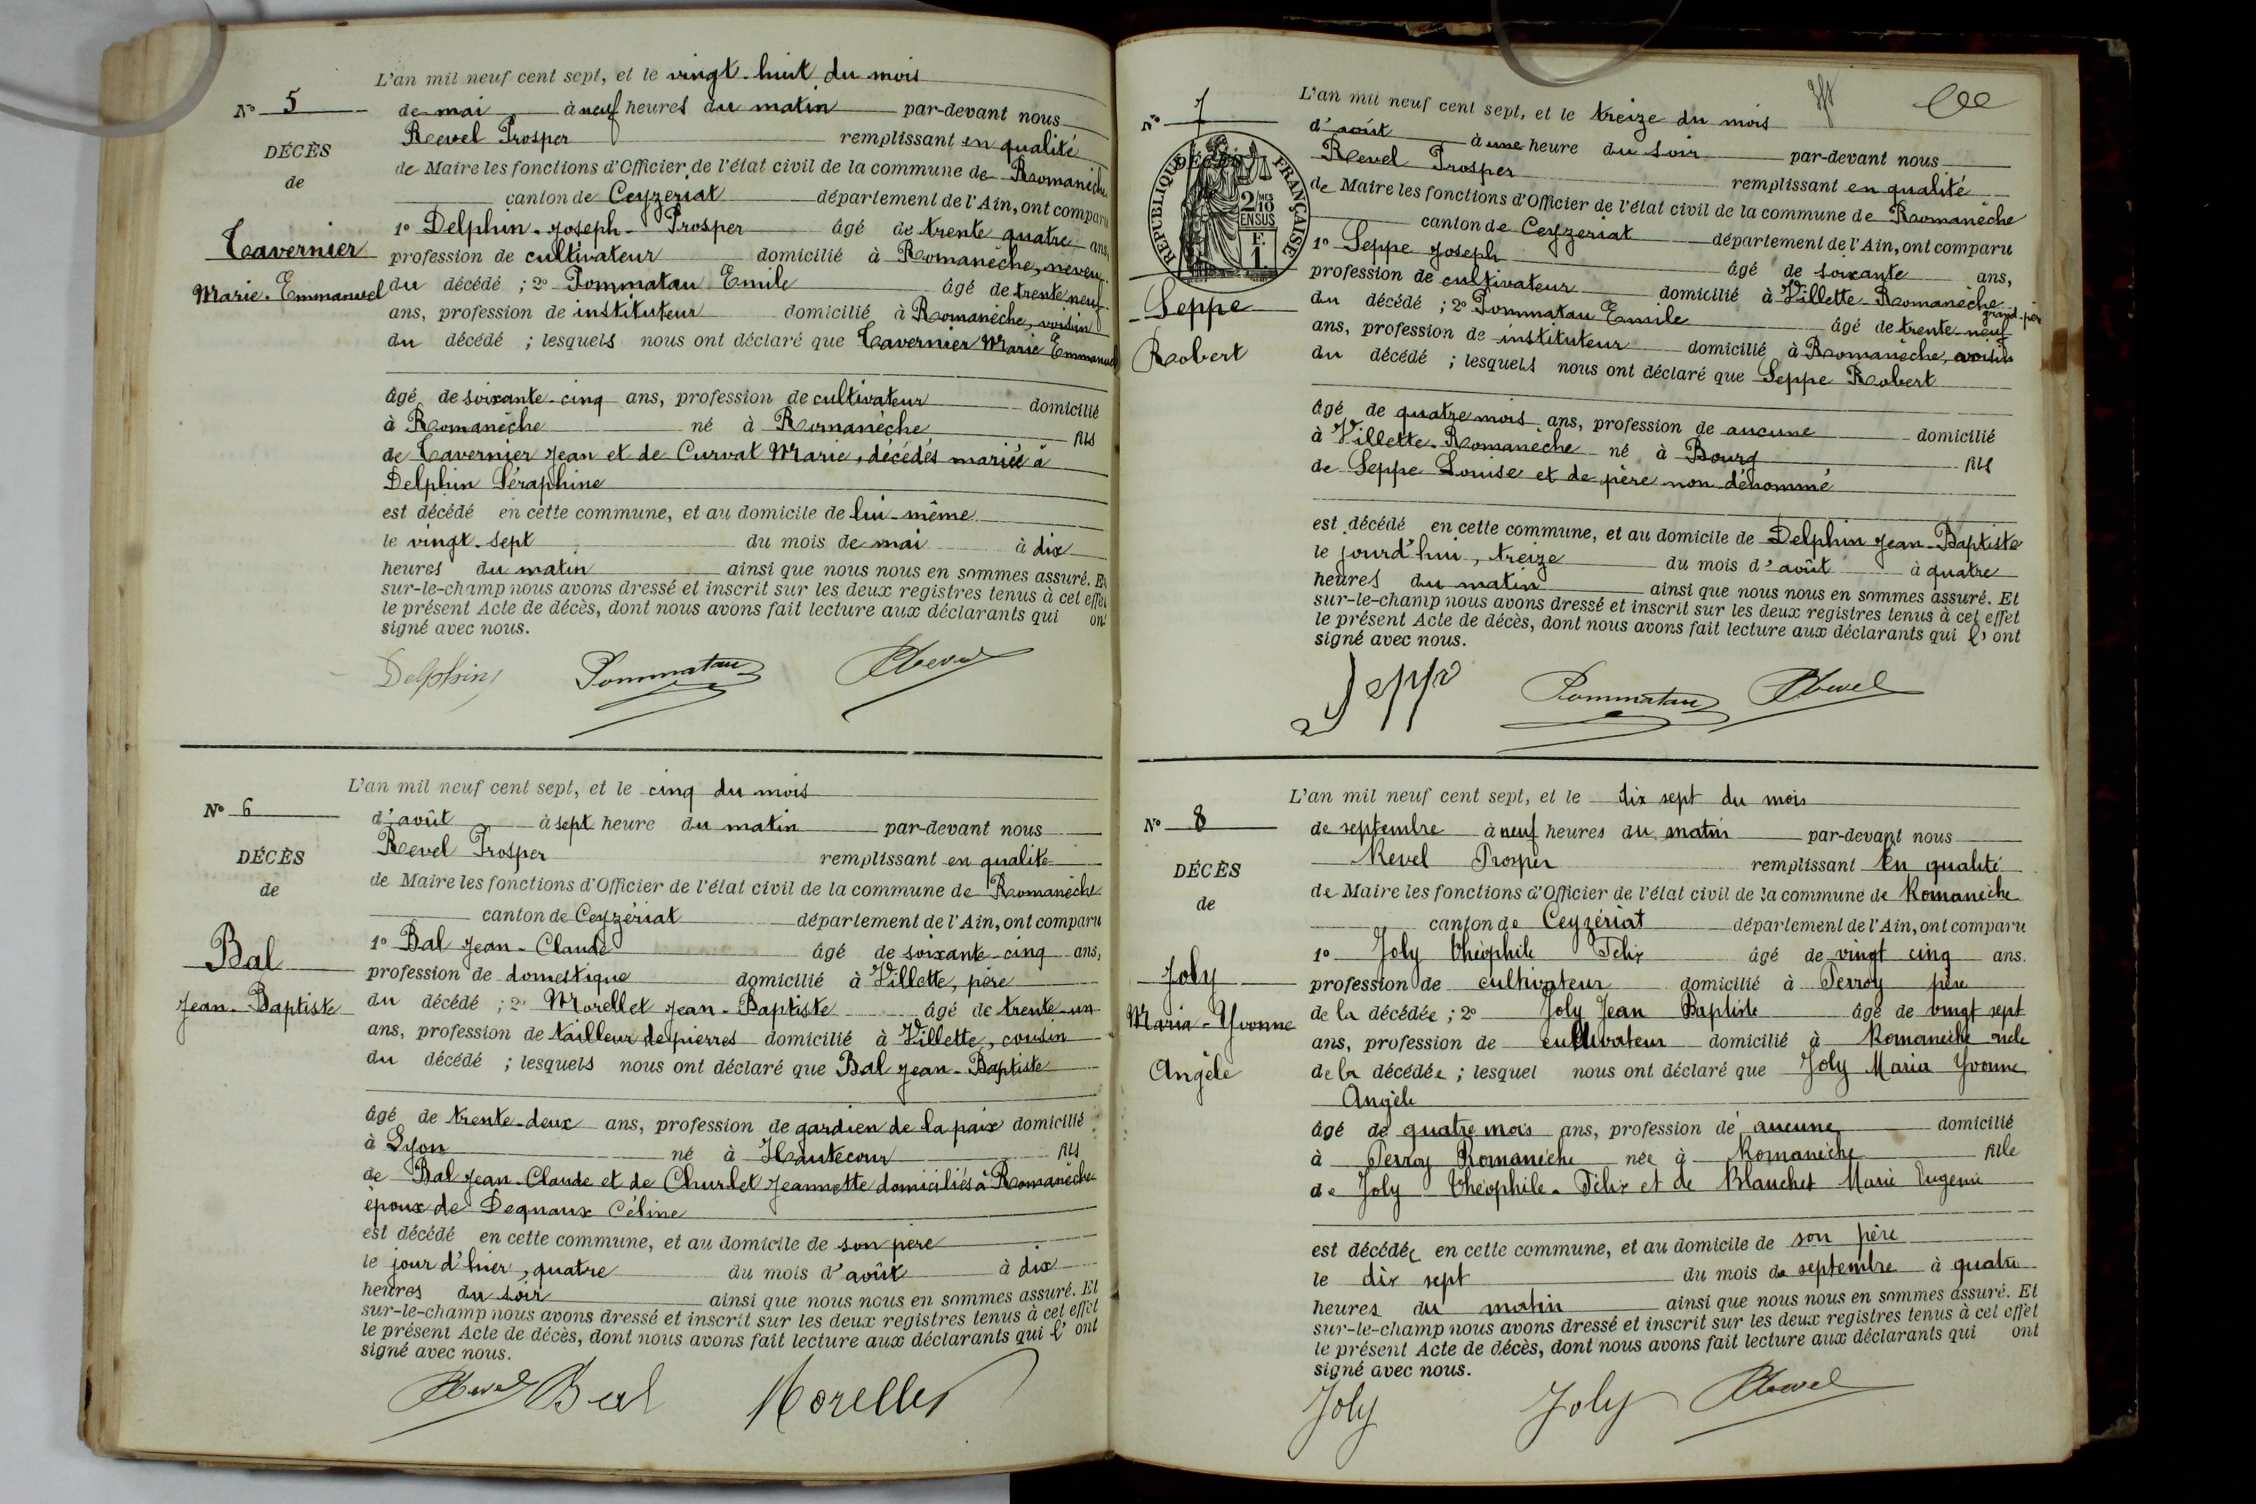 L'an mil neuf cent sept, et le vingt-huit du mois
N° 5
de mai à neuf heures du matin par-devant nous
Revel Prosper remplissant en qualité
DÉCÈS
de Maire les fonctions d'Officier de l'état civil de la commune de Romanèche
de
canton de Ceyzeriat département de l'Ain, ont comparu
1° Delphin-Joseph-Prosper âgé de trente quatre ans,
Tavernier
profession de cultivateur domicilié à Romanèche, neveu
Marie-Emmanuel
du décédé ; 2° Pommatau Emile âgé de trente neuf
ans, profession de instituteur domicilié à Romanèche, voisin
du décédé ; lesquels nous ont déclaré que Tavernier Marie Emmanuel
âgé de soixante-cinq ans, profession de cultivateur domicilié
à Romanèche né à Romanèche fils
de Tavernier Jean et de Curvat Marie, décédés marié à
Delphin Séraphine
est décédé en cette commune, et au domicile de lui-même
le vingt-sept du mois de mai à dix
heures du matin ainsi que nous nous en sommes assuré. Et
sur-le-champ nous avons dressé et inscrit sur les deux registres tenus à cet effet
le présent Acte de décès, dont nous avons fait lecture aux déclarants qui ont
signé avec nous.
Delphin Pommatau Revel
L'an mil neuf cent sept, et le cinq du mois
N° 6
d'août à sept heure du matin par-devant nous
Revel Prosper remplissant en qualité
DÉCÈS
de Maire les fonctions d'Officier de l'état civil de la commune de Romanèche
de
canton de Ceyzériat département de l'Ain, ont comparu
1° Bal Jean-Claude âgé de soixante-cinq ans,
Bal
profession de domestique domicilié à Villette, père
Jean-Baptiste
du décédé ; 2° Morellet Jean-Baptiste âgé de trente-un
ans, profession de tailleur de pierres domicilié à Villette, cousin
du décédé ; lesquels nous ont déclaré que Bal Jean-Baptiste
âgé de trente-deux ans, profession de gardien de la paix domicilié
à Lyon né à Hautecour fils
de Bal Jean-Claude et de Churlet Jeannette domiciliés à Romanèche
époux de Degnaux Céline
est décédé en cette commune, et au domicile de son père
le jour d'hier, quatre du mois d'août à dix
heures du soir ainsi que nous nous en sommes assuré. Et
sur-le-champ nous avons dressé et inscrit sur les deux registres tenus à cet effet
le présent Acte de décès, dont nous avons fait lecture aux déclarants qui l'ont
signé avec nous.
Revel Bal Morellet
L'an mil neuf cent sept, et le treize du mois
N° 7
d'août à une heure du soir par-devant nous
Revel Prosper remplissant en qualité
DÉCÈS
RÉPUBLIQUE FRANÇAISE
2/10 MES
EN SUS
F.
1.
de Maire les fonctions d'Officier de l'état civil de la commune de Romanèche
canton de Ceyzeriat département de l'Ain, ont comparu
1° Seppe Joseph âgé de soixante ans,
profession de cultivateur domicilié à Villette-Romanèche grand-père
Seppe
du décédé ; 2° Pommatau Emile âgé de trente-neuf
ans, profession de instituteur domicilié à Romanèche, voisin
Robert
du décédé ; lesquels nous ont déclaré que Seppe Robert
âgé de quatre mois ans, profession de aucune domicilié
à Villette-Romanèche né à Bourg fils
de Seppe Louise et de père non dénommé
est décédé en cette commune, et au domicile de Delphin Jean-Baptiste
le jourd'hui, treize du mois d'août à quatre
heures du matin ainsi que nous nous en sommes assuré. Et
sur-le-champ nous avons dressé et inscrit sur les deux registres tenus à cet effet
le présent Acte de décès, dont nous avons fait lecture aux déclarants qui l'ont
signé avec nous.
Seppe Pommatau Revel
L'an mil neuf cent sept, et le dix sept du mois
N° 8
de septembre à neuf heures du matin par-devant nous
Revel Prosper remplissant en qualité
DÉCÈS
de Maire les fonctions d'Officier de l'état civil de la commune de Romanèche
de
canton de Ceyzériat département de l'Ain, ont comparu
1° Joly Théophile Félix âgé de vingt cinq ans.
Joly
profession de cultivateur domicilié à Perroy père
Maria-Yvonne
de la décédée ; 2° Joly Jean Baptiste âgé de vingt sept
ans, profession de cultivateur domicilié à Romanèche oncle
Angèle
de la décédée ; lesquel nous ont déclaré que Joly Maria Yvonne
Angèle
âgé de quatre mois ans, profession de aucune domicilié
à Perroy Romanèche née à Romanèche fille
de Joly Théophile-Félix et de Blanchet Marie Eugénie
est décédée en cette commune, et au domicile de son père
le dix sept du mois de septembre à quatre
heures du matin ainsi que nous nous en sommes assuré. Et
sur-le-champ nous avons dressé et inscrit sur les deux registres tenus à cet effet
le présent Acte de décès, dont nous avons fait lecture aux déclarants qui ont
signé avec nous.
Joly Joly Revel